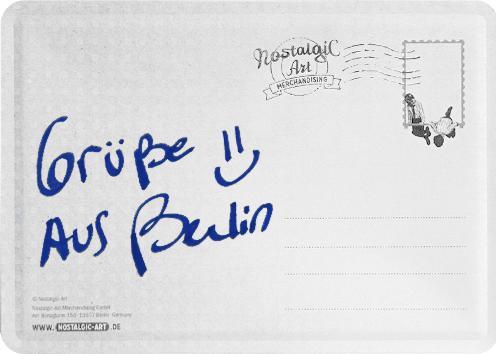 Nostalgic
Art
MERCHANDISING
Grüße
Aus Berlin
© Nostalgic-Art
Nostalgic-Art Merchandising GmbH
Berlin · Germany
WWW. NOSTALGIC-ART .DE